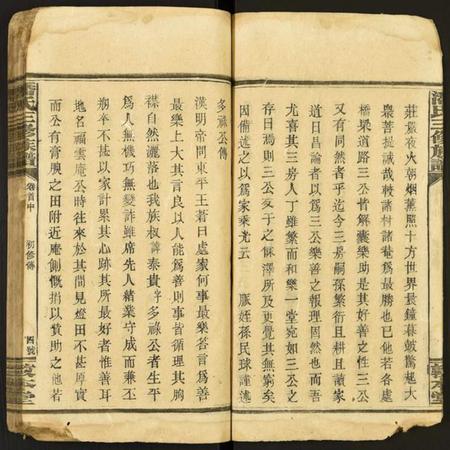 莊嚴夜火朝烟薰照十方世界晨鐘暮鼓驚起大
衆菩提誠哉較諸村諸菴爲最勝也已他若各處
橋梁道路三公皆解囊樂助是其好善之性三公
又有同然者乎迄今三房嗣孫繁衍且耕且讀家
道日昌論者以爲三公樂善之報理固然也而吾
尤喜其三房人丁雖繁而和樂一堂宛如三公之
存日焉則三公友于之
澤所及更覺其無窮矣
因備述之以爲家乘光云
脈姪孫民球謹述
多祿公傳
漢明帝問東平王蒼曰處家何事最樂答言爲善
最樂上大其言良以人能爲善則事皆循理其胸
襟自然灑落也我族叔
泰貴字多祿公者生平
爲人無機巧無變詐雖席先人緒業守成而兼不
病卒不甚以家計累其心跡其所最好者惟善耳
地名福雲庵公時往來於其間見燈田不甚厚實
而公有膏腴之田附近庵側慨捐以贊助之他若
三修族譜
卷首中
初修傳
四號
三修族譜